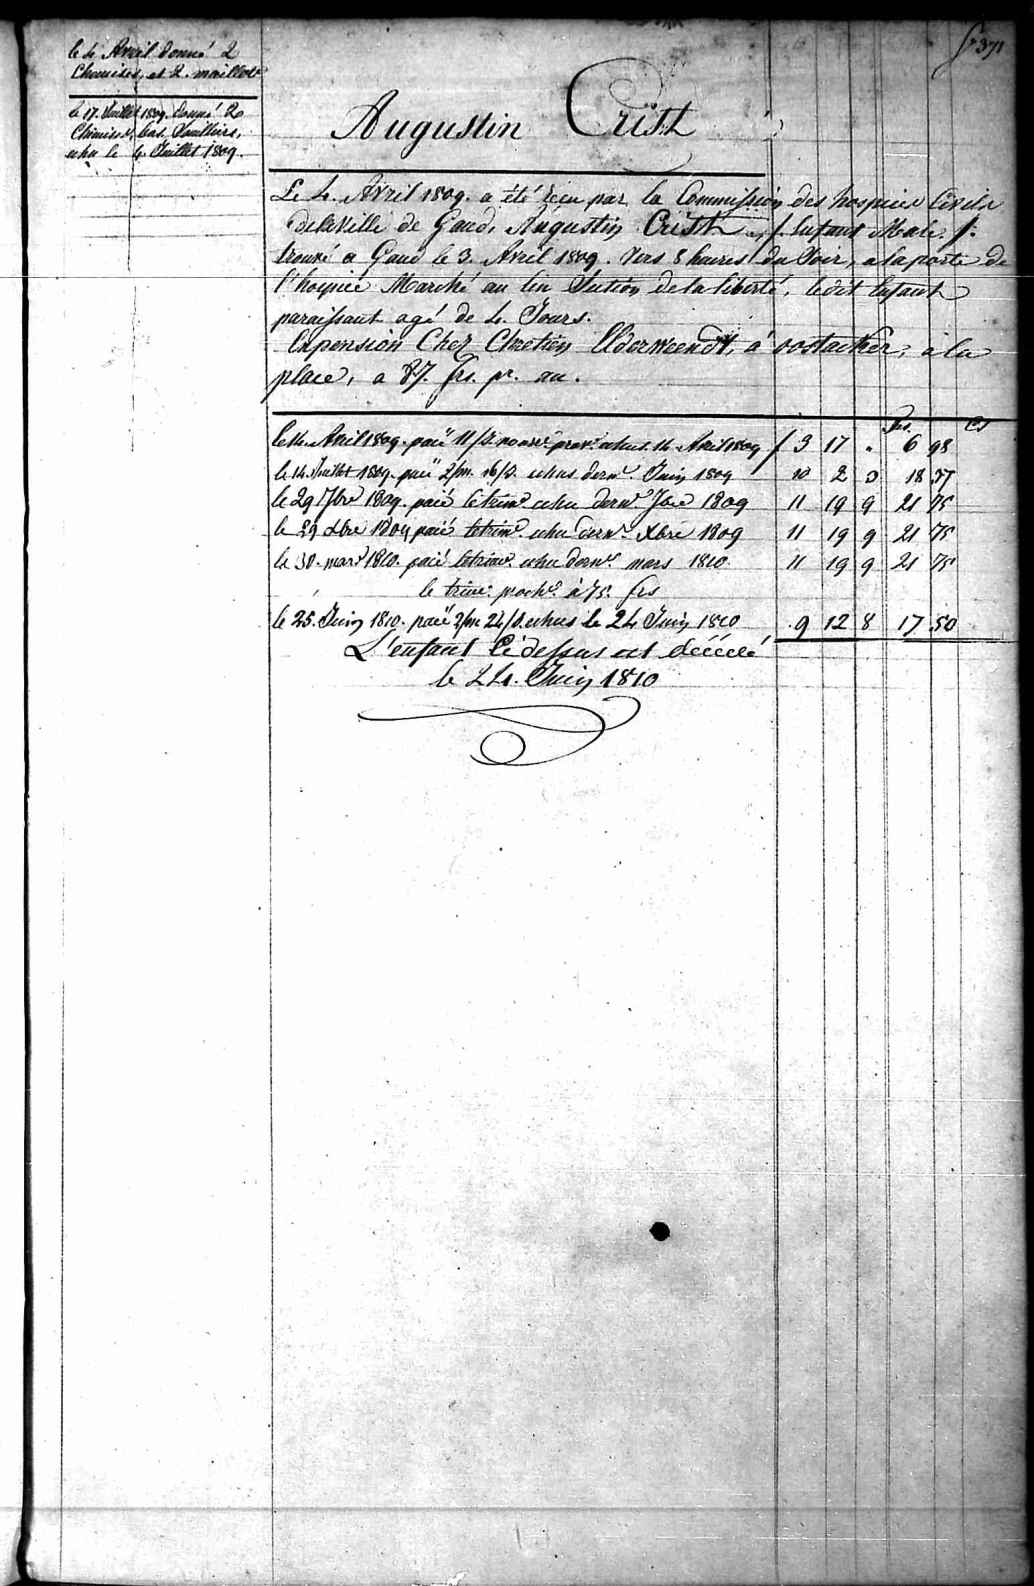 fo 371
le 4 Avril donné 2
Chemises, et 2. maillots
le 17. Juillet 1809. donné 2
Chemises, bas, Souilliers,
echu le 4. Juillet 1809.
Augustin Crist
Le 4. Avril 1809. a été recu par la Commission des hospices Civils
de la Ville de Gand, Augustin Crist, f. Enfant Male. f.
trouvé a Gand le 3. Avril 1809. Vers 8 heures du Soir, a la porte de
l'hospice Marché au lin Section de la liberté, ledit Enfant
paraissant agé de 4. Jours.
En pension Chez Chretien Elderweendt, á oostacker, a la
place, a 87. frs. pr. an.
frs. Cs
le 14 Avril 1809. paié 11/J. echus 14 Avril 1809 f 3 17 " 6 98
le 14. Juillet 1809. paié 2/m. 16/J. echus dernr. Juin 1809 10 2 0 18 37
le 29 7bre 1809. paié le trime. echu dernr. 7bre 1809 11 19 9 21 75
le 29 Xbre 1809 paié le trime. echu dernr. Xbre 1809 11 19 9 21 75
le 30. mars 1810. paié le trime. echu dernr. mars 1810 11 19 9 21 75
le trime. proche. à 75. frs
le 25. Juin 1810. paié 2/m 24/J. echus le 24 Juin 1810 9 12 8 17 50
L'enfant Ci dessus est décédé
le 24. Juin 1810